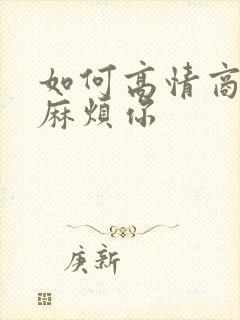 如何高情商
麻烦你
庚新